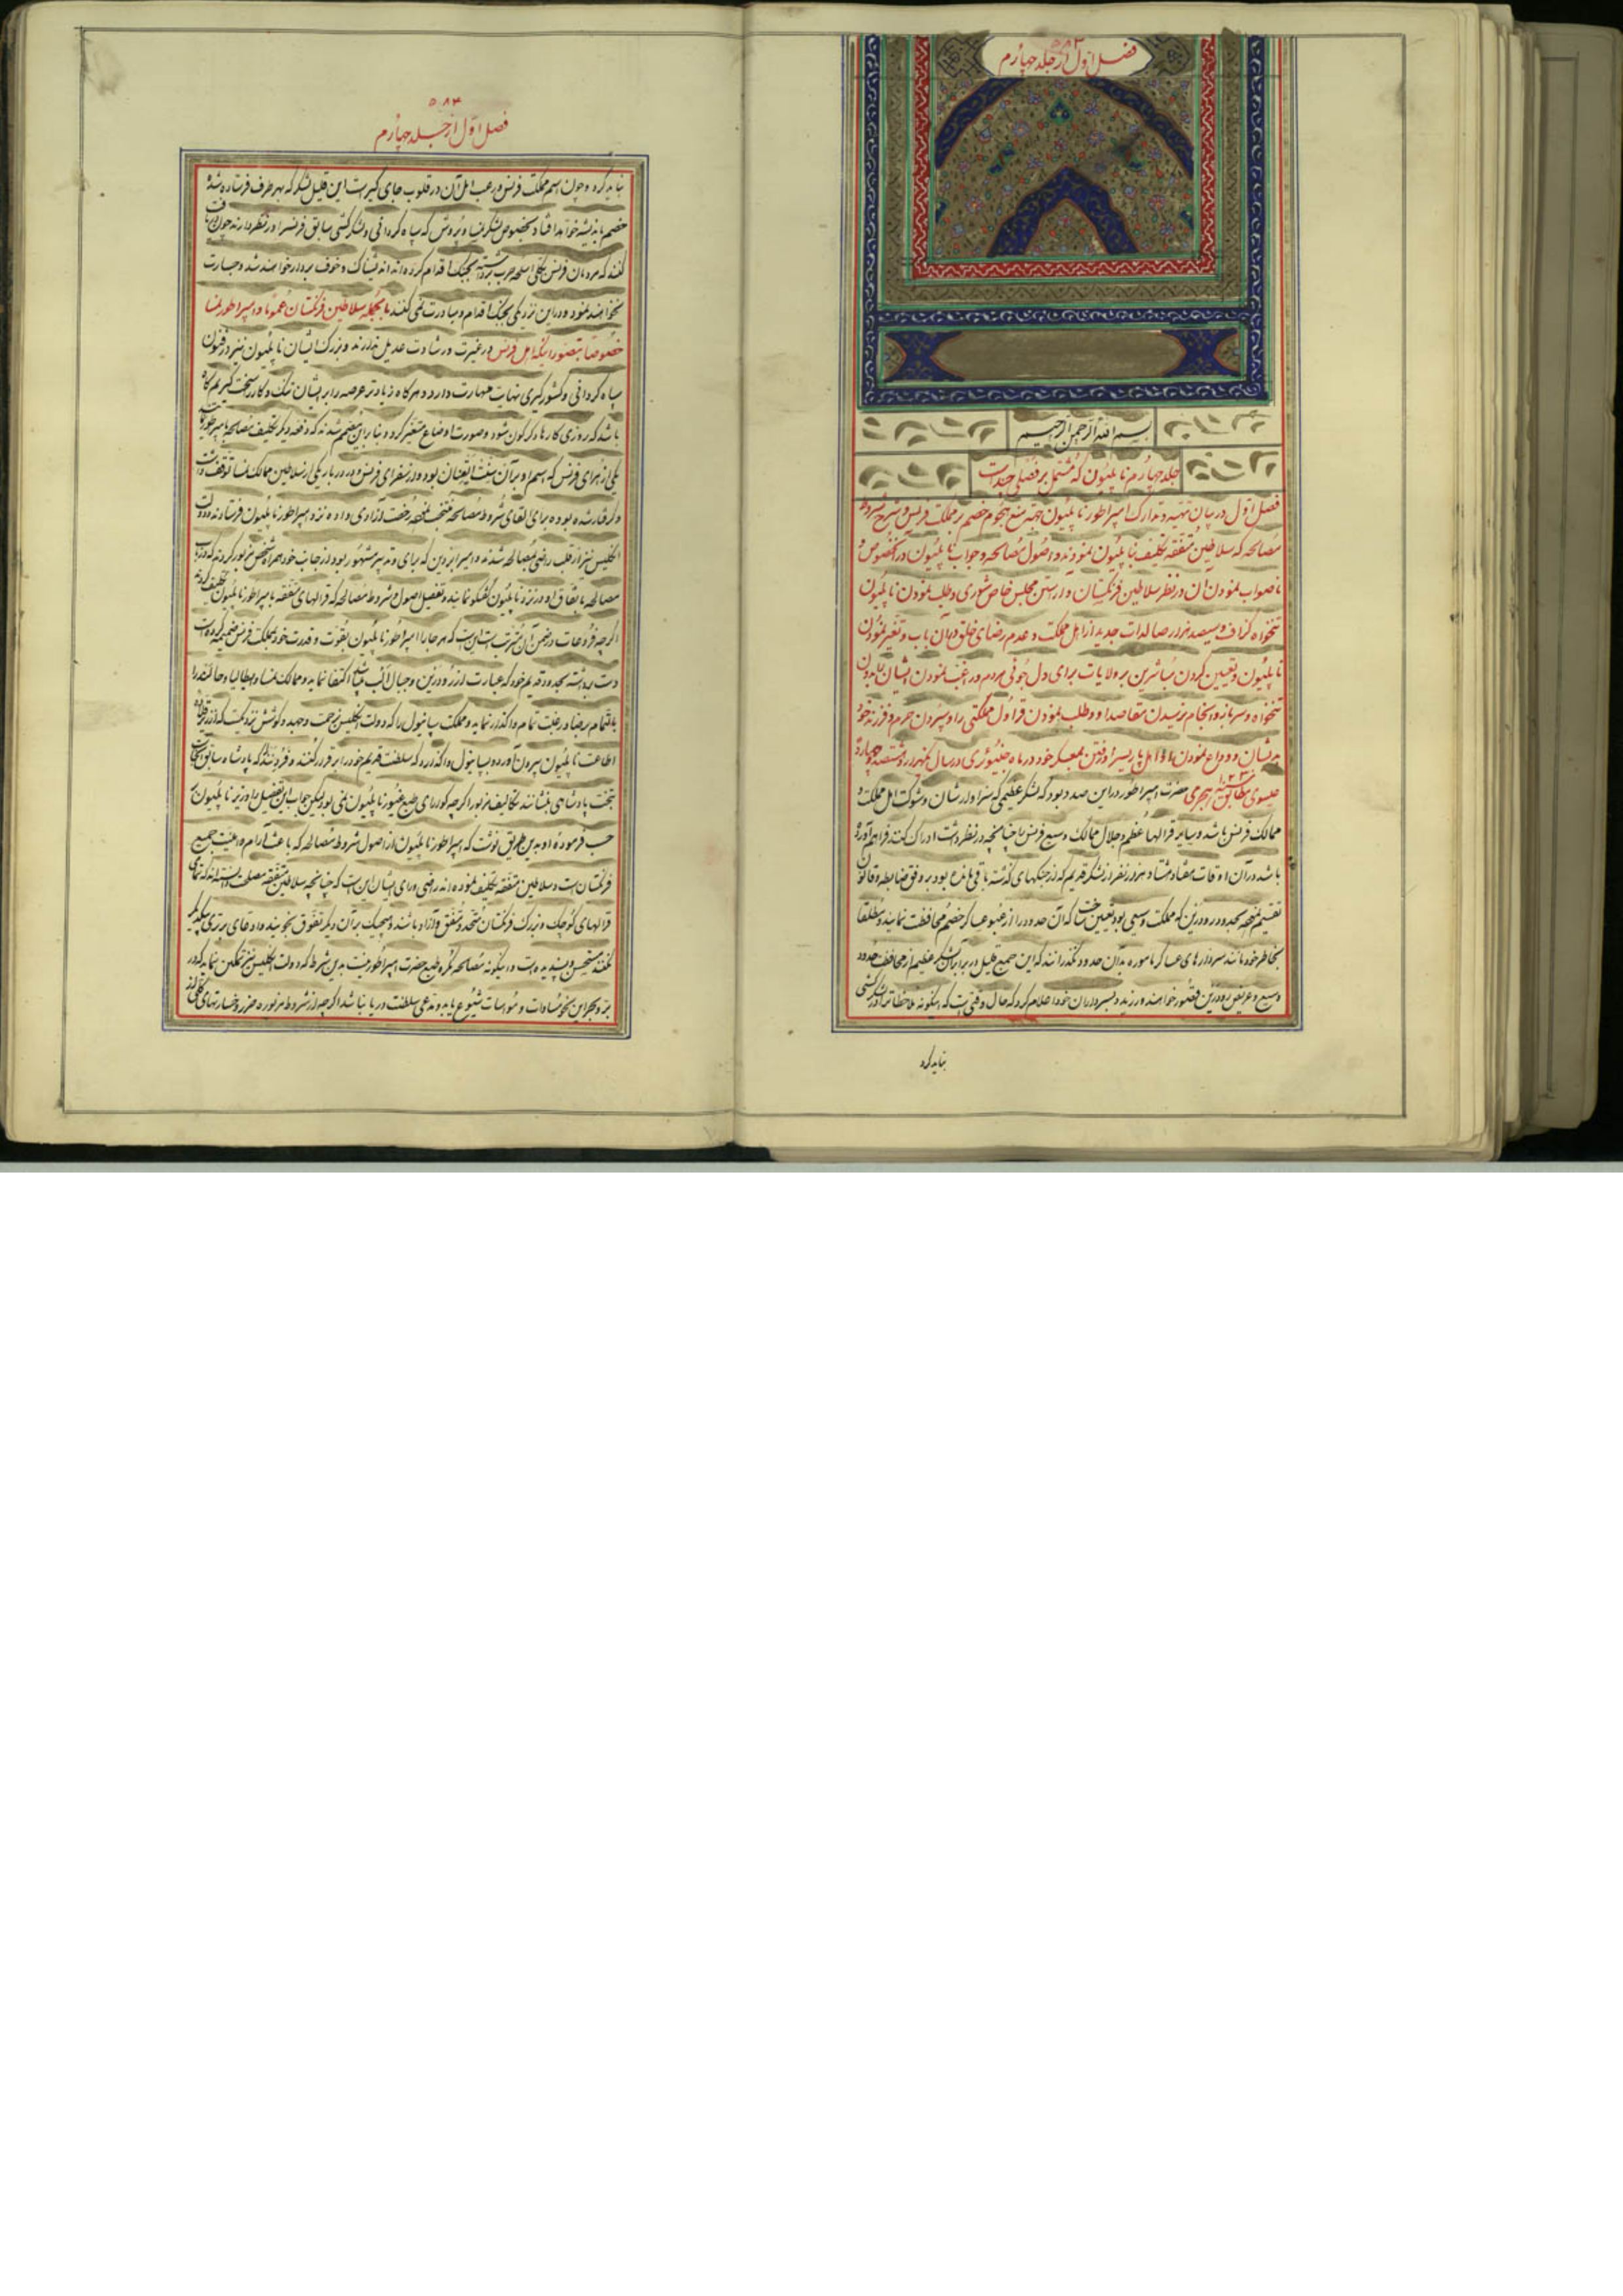 ۵۸۲
فصل اول از جلد چهارم
بسم الله الرحمن الرحیم
جلد چهارم ناپلیون که مشتمل بر فصلی چند است
فصل اول در بیان تهیه و تدارک امپراطور ناپلیون جهة منع هجوم خصم بر مملکت فرنس و شرح شروط
مصالحه که سلاطین متفقه تکلیف بناپلیون نمودند و اصول مصالحه و جواب ناپلیون در آنخصوص و
ناصواب نمودن آن در نظر سلاطین فرنگستان و آراستن مجلس خاص شوری و طلب نمودن ناپلیون
تنخواه گزاف و سیصد هزار صالدات جدید از اهل مملکت و عدم رضای خلق در آن باب و تغیر نمودن
ناپلیون و تعیین کردن مباشرین بر ولایات برای دل جوئی مردم و راغب نمودن ایشان بدادن
تنخواه و سرباز و انجام نرسیدن مقاصد او و طلب نمودن قراول مملکتی را و سپردن حرم و فرزند خود
بدیشان و وداع نمودن با اهل پاریس و رفتن بمعسکر خود در ماه جنیوری در سال یکهزار و هشتصد و چهارده
عیسوی مطابق ۱۲۲۹ هجری حضرت امپراطور در این صدد بود که لشکر عظیمی که سزاوار شان و شوکت اهل مملکت و
ممالک فرنس باشد و سایر قرالها عظم و جلال ممالک وسیع فرنس را چنانچه در نظر داشت ادراک کنند فراهم آورده
باشد در آن اوقات هفتاد هشتاد هزار نفر از لشکر قدیم که از جنکهای گذشته باقی مانده بود بر وفق ضابطه و قانون
تقسیم نمود بحدود رود رین که مملکت وسیعی بود تعیین ساخت که آن حدود را از عبور عساکر خصم محافظت نمایند و مطلقا
بخاطر خود مانند سردارهای عساکر ماموره بدان حدود نگذرانند که این جمع قلیل در برابر آن لشکر عظیم از محافظت حدود
وسیع و عریض رود رین قصور خواهند ورزید و بسرداران خود اعلام کرد که حال وقتی است که اینگونه ملاحظات در لشکرکشی
نباید کرد
۵۸۳
فصل اول از جلد چهارم
نباید کرد و چون اسم مملکت فرنس و رعب اهل آن در قلوب جای گیر است این قلیل لشکر که بهر طرف فرستاده شد
خصم باندیشه خواهد افتاد بخصوص لشکر نمسا و پروس که سپاه گردانی و لشکرکشی سابق فرنسه را در نظر دارند چون
کنند که مردمان فرنس بکلی اسلحه حرب برداشته بجنگ اقدام کرده‌اند اندیشناک و خوف بردار خواهند شد و جسارت
نخواهند نمود و در این نزدیکی بجنگ اقدام و مبادرت نمی‌کنند بالجمله سلاطین فرنگستان عموما و امپراطور نمسا
خصوصا بتصور اینکه اهل فرنس در غیرت و رشادت عدیل ندارند و بزرگ ایشان ناپلیون نیز در فنون
سپاه گردانی و کشورگیری نهایت مهارت دارد و هر گاه زیادتر عرصه را بر ایشان تنک و کار را سخت گیریم گاه
باشد که روزی کارها دگرگون شود و صورت اوضاع متغیر گردد بنا بر این مصمم شدند که دفعه دیگر تکلیف مصالحه بامپراطور
یکی از امرای فرنس که اسم او بران سنت ایغنان بود و از سفرای فرنس در دربار یکی از سلاطین ممالک نمسا توقف داشت
و گرفتار شده بود برای القای شروط مصالحه منتخب نموده رخصت آزادی داده نزد امپراطور ناپلیون فرستادند و دولت
انگلیس نیز از قلب راضی بمصالحه شدند و امیر ابردین که برای و تدبیر مشهور بود از جانب خود همراه شخص مزبور کردند که در باب
مصالحه باتفاق او در نزد ناپلیون گفتگو نمایند و تفصیل اصول و شروط مصالحه که قرالهای متفقه بامپراطور ناپلیون تکلیف کردند
اگرچه فروعات در ضمن آن مترتب است این است که هر جا را امپراطور ناپلیون بقوت و قدرت خود بمملکت فرنس ضمیمه کرده است
دست برداشته بحدود قدیم خود که عبارت از رود رین و جبال الب باشد اکتفا نماید و ممالک نمسا و ایطالیا و هالند را
بالتمام برضا و رغبت تمام واگذار نماید و مملکت سپانیول را که دولت انگلیس زحمت و جهد و کوشش نزدیک است که از ربقه
اطاعت ناپلیون بیرون آورده بسپانیول واگذارد که سلطنت قدیم خود را برقرار کنند و فردینند که پادشاه سابق آنجاست
بتخت پادشاهی بنشانند تکالیف مزبور اگرچه گوارای طبع غیور ناپلیون نمی‌بود لیکن جواب این تفصیل را وزیر ناپلیون
حسب فرموده او بدین طریق نوشت که امپراطور ناپلیون از اصول شروط مصالحه که باعث آرام و امنیت جمیع
فرنگستان است و سلاطین متفقه تکلیف نموده‌اند راضی و رای ایشان این است که چنانچه سلاطین متفقه مصلحت دانسته‌اند که تمامی
قرالهای کوچک و بزرگ فرنگستان متحد و متفق و آزاد باشند و هیچیک بر آن دیگر تفوق نجویند و ادعای برتری بیکدیگر
نکنند مستحسن و پسندیده است و اینگونه مصالحه مکروه طبع حضرت امپراطور نیست بدین شرط که دولت انگلیس نیز تمکین نماید که در
بر و بحر این نحو مساوات و مواسات شیوع یابد و مدعی سلطنت دریا نباشد اگرچه از شروط مزبوره ضرر و خسارتهای کلی